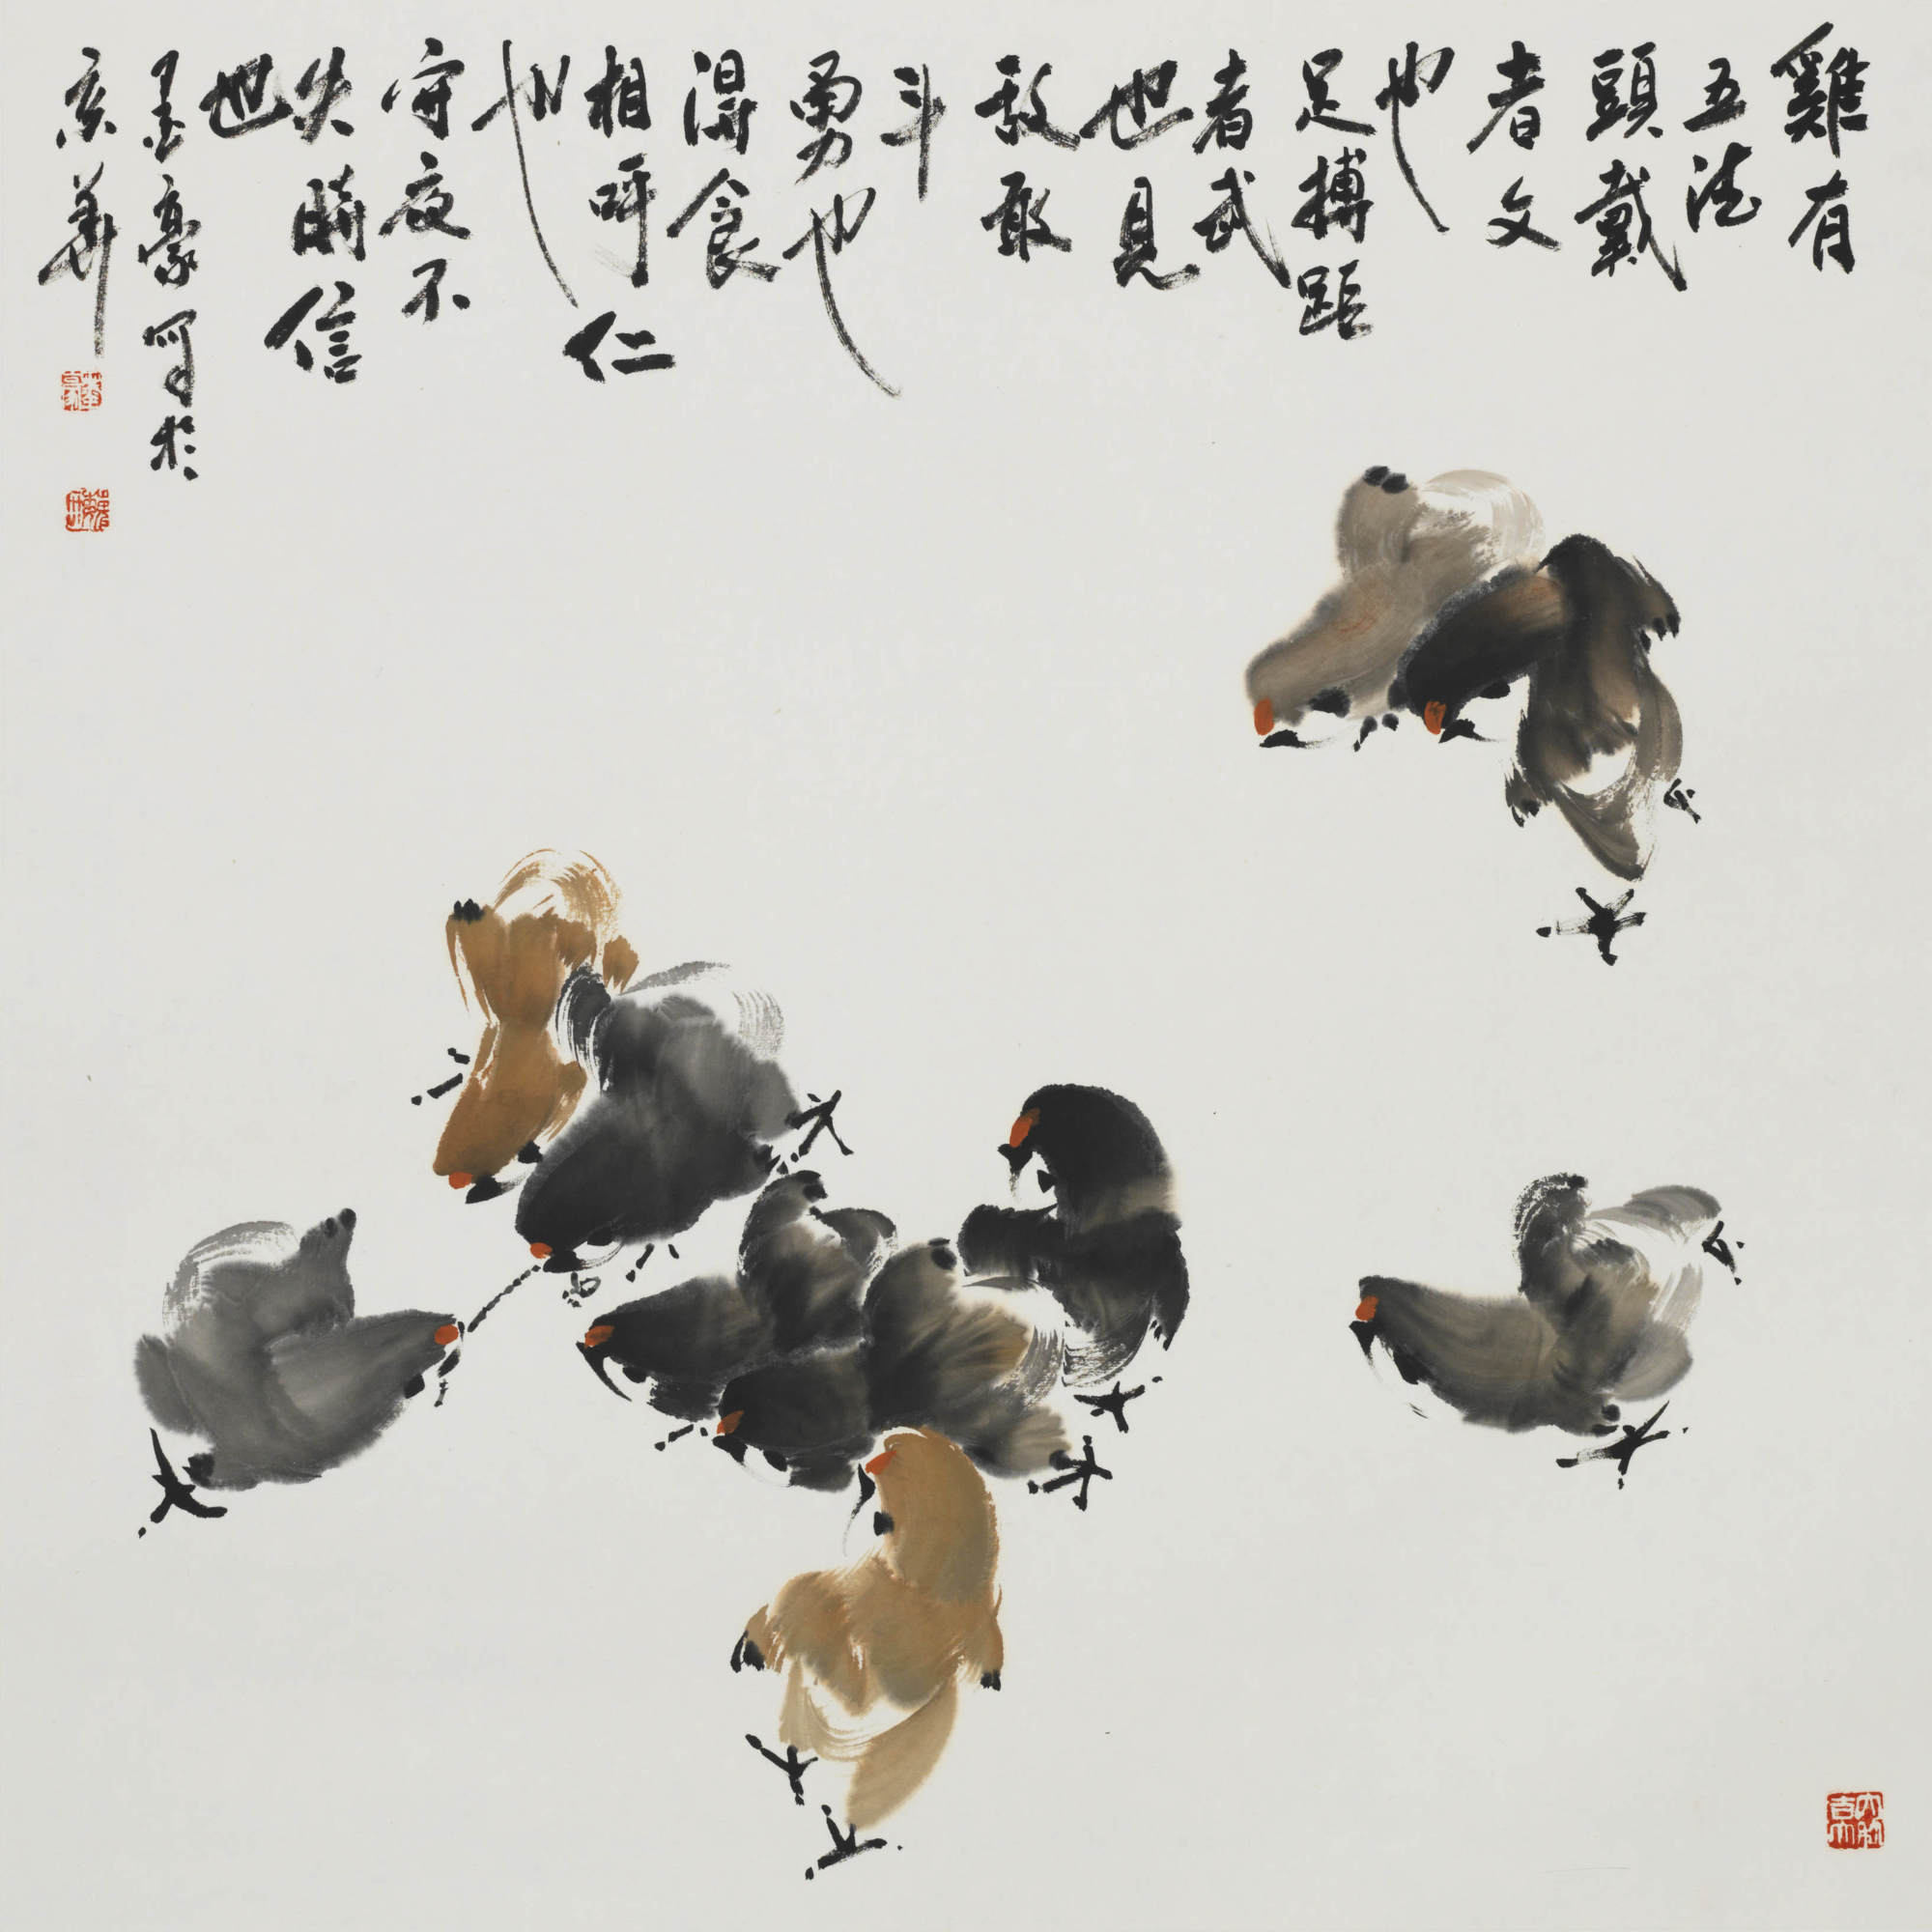 雞有
五德
頭戴
者文
也
足搏距
者武
也見
敌敢
斗
勇也
得食
相呼仁
也
守夜不
失時信
也
豪写於
京華